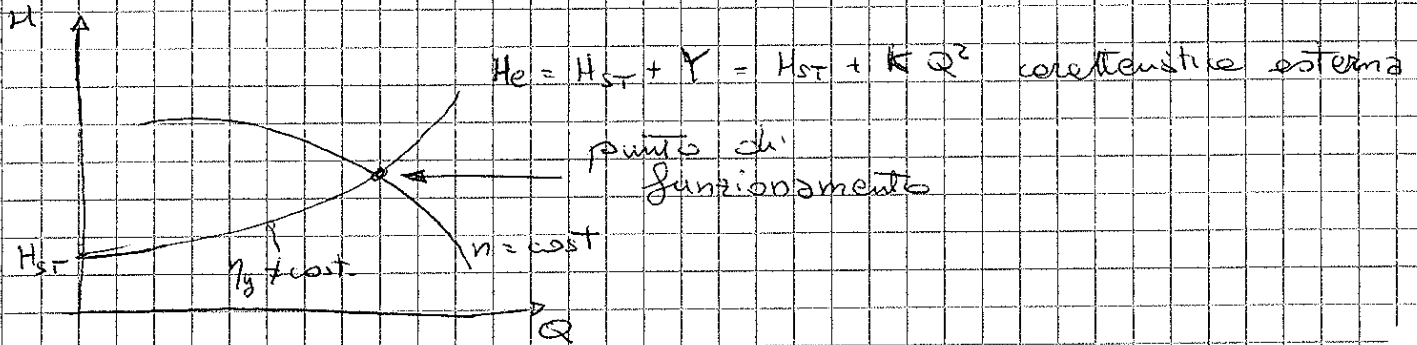 H
He = H_ST + Y = H_ST + K Q² caratteristica esterna
punto di
funzionamento
n = cost
H_ST
η_y ≠ cost.
Q